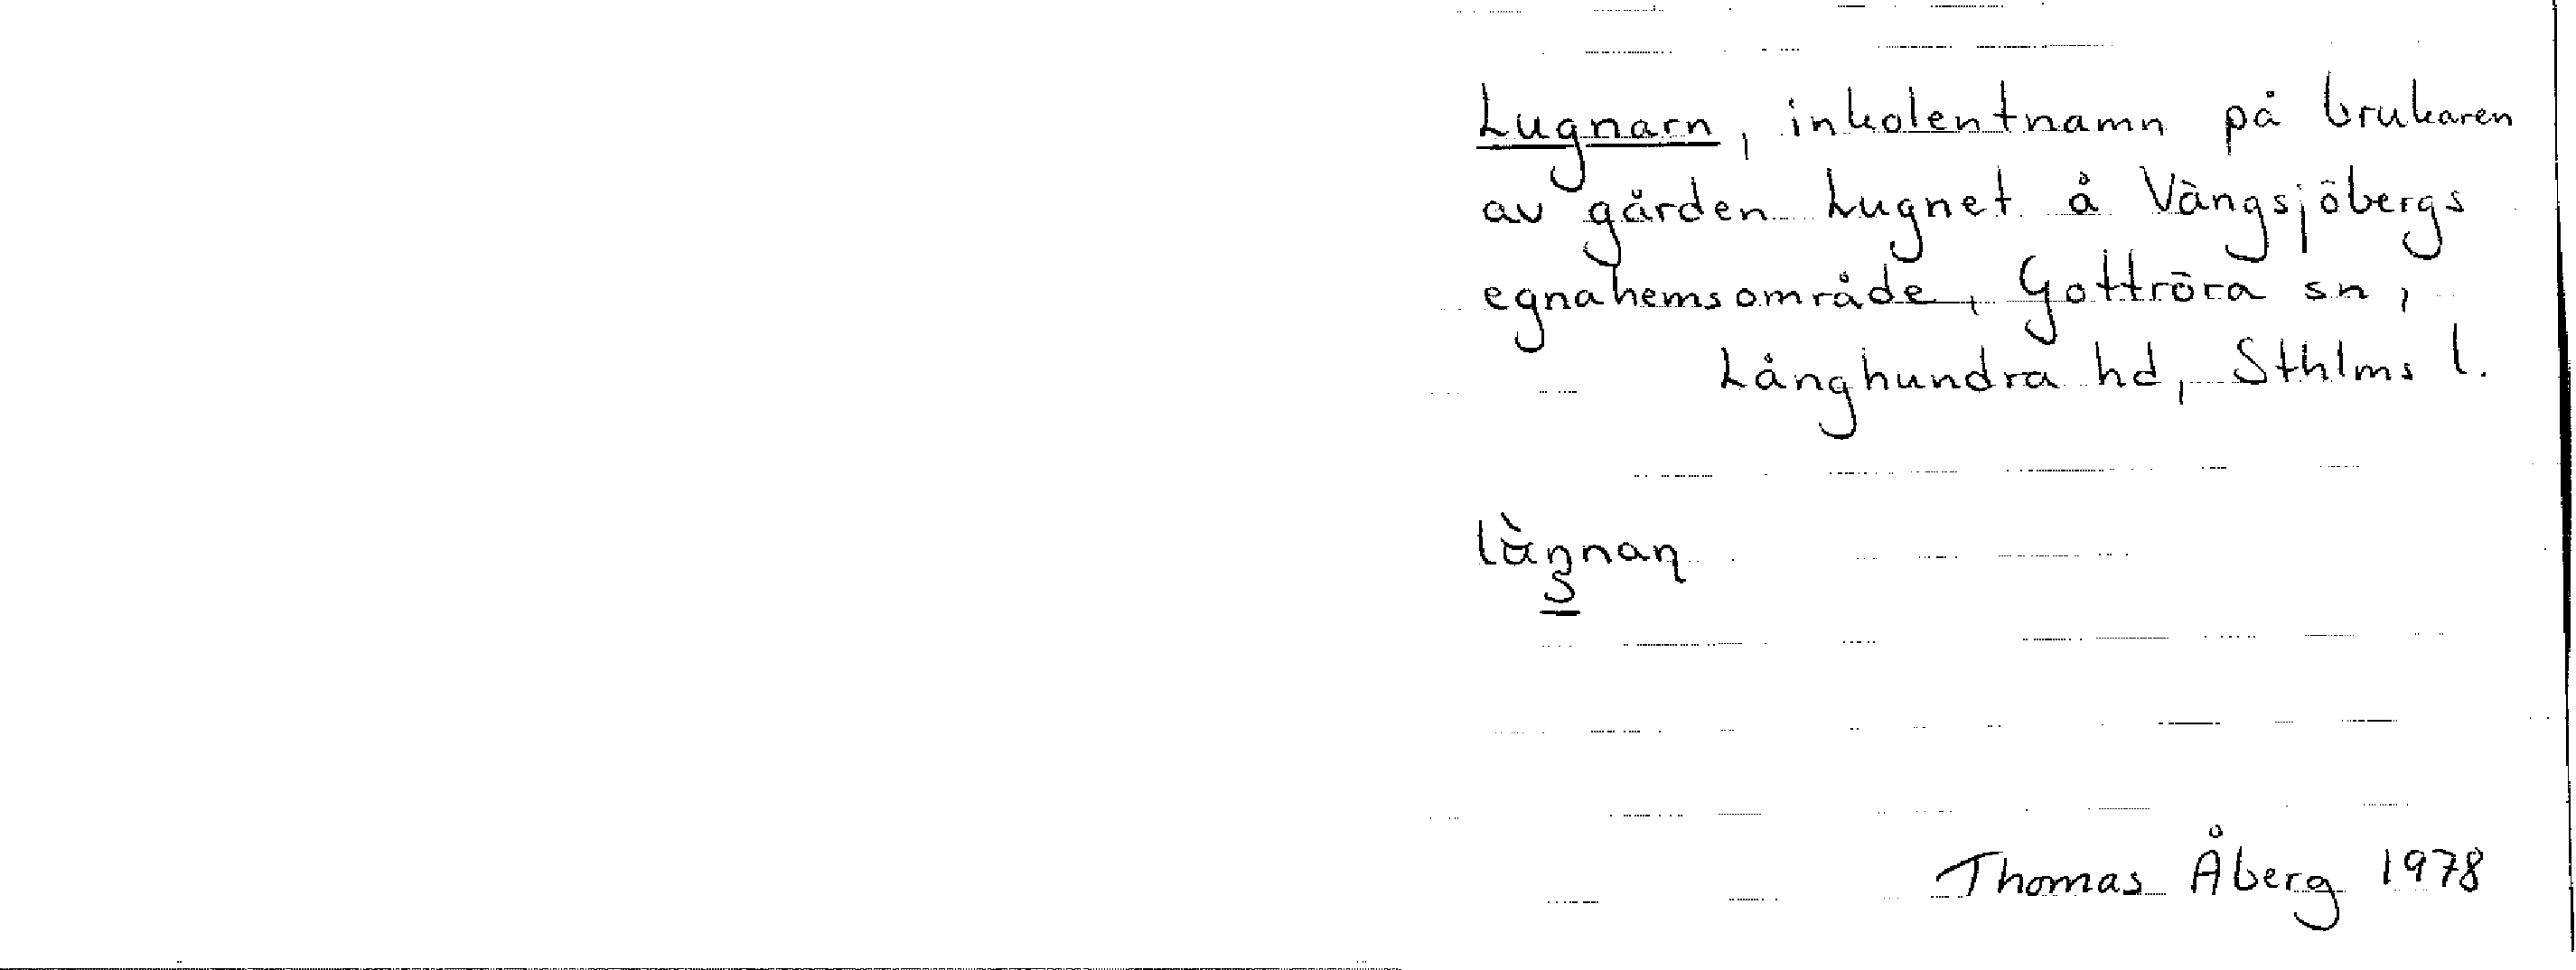 Lugnarn, inkolentnamn på brukaren
av gården Lugnet å Vängsjöbergs
egnahemsområde, Gottröra sn,
Långhundra hd, Sthlms l.
Thomas Åberg 1978